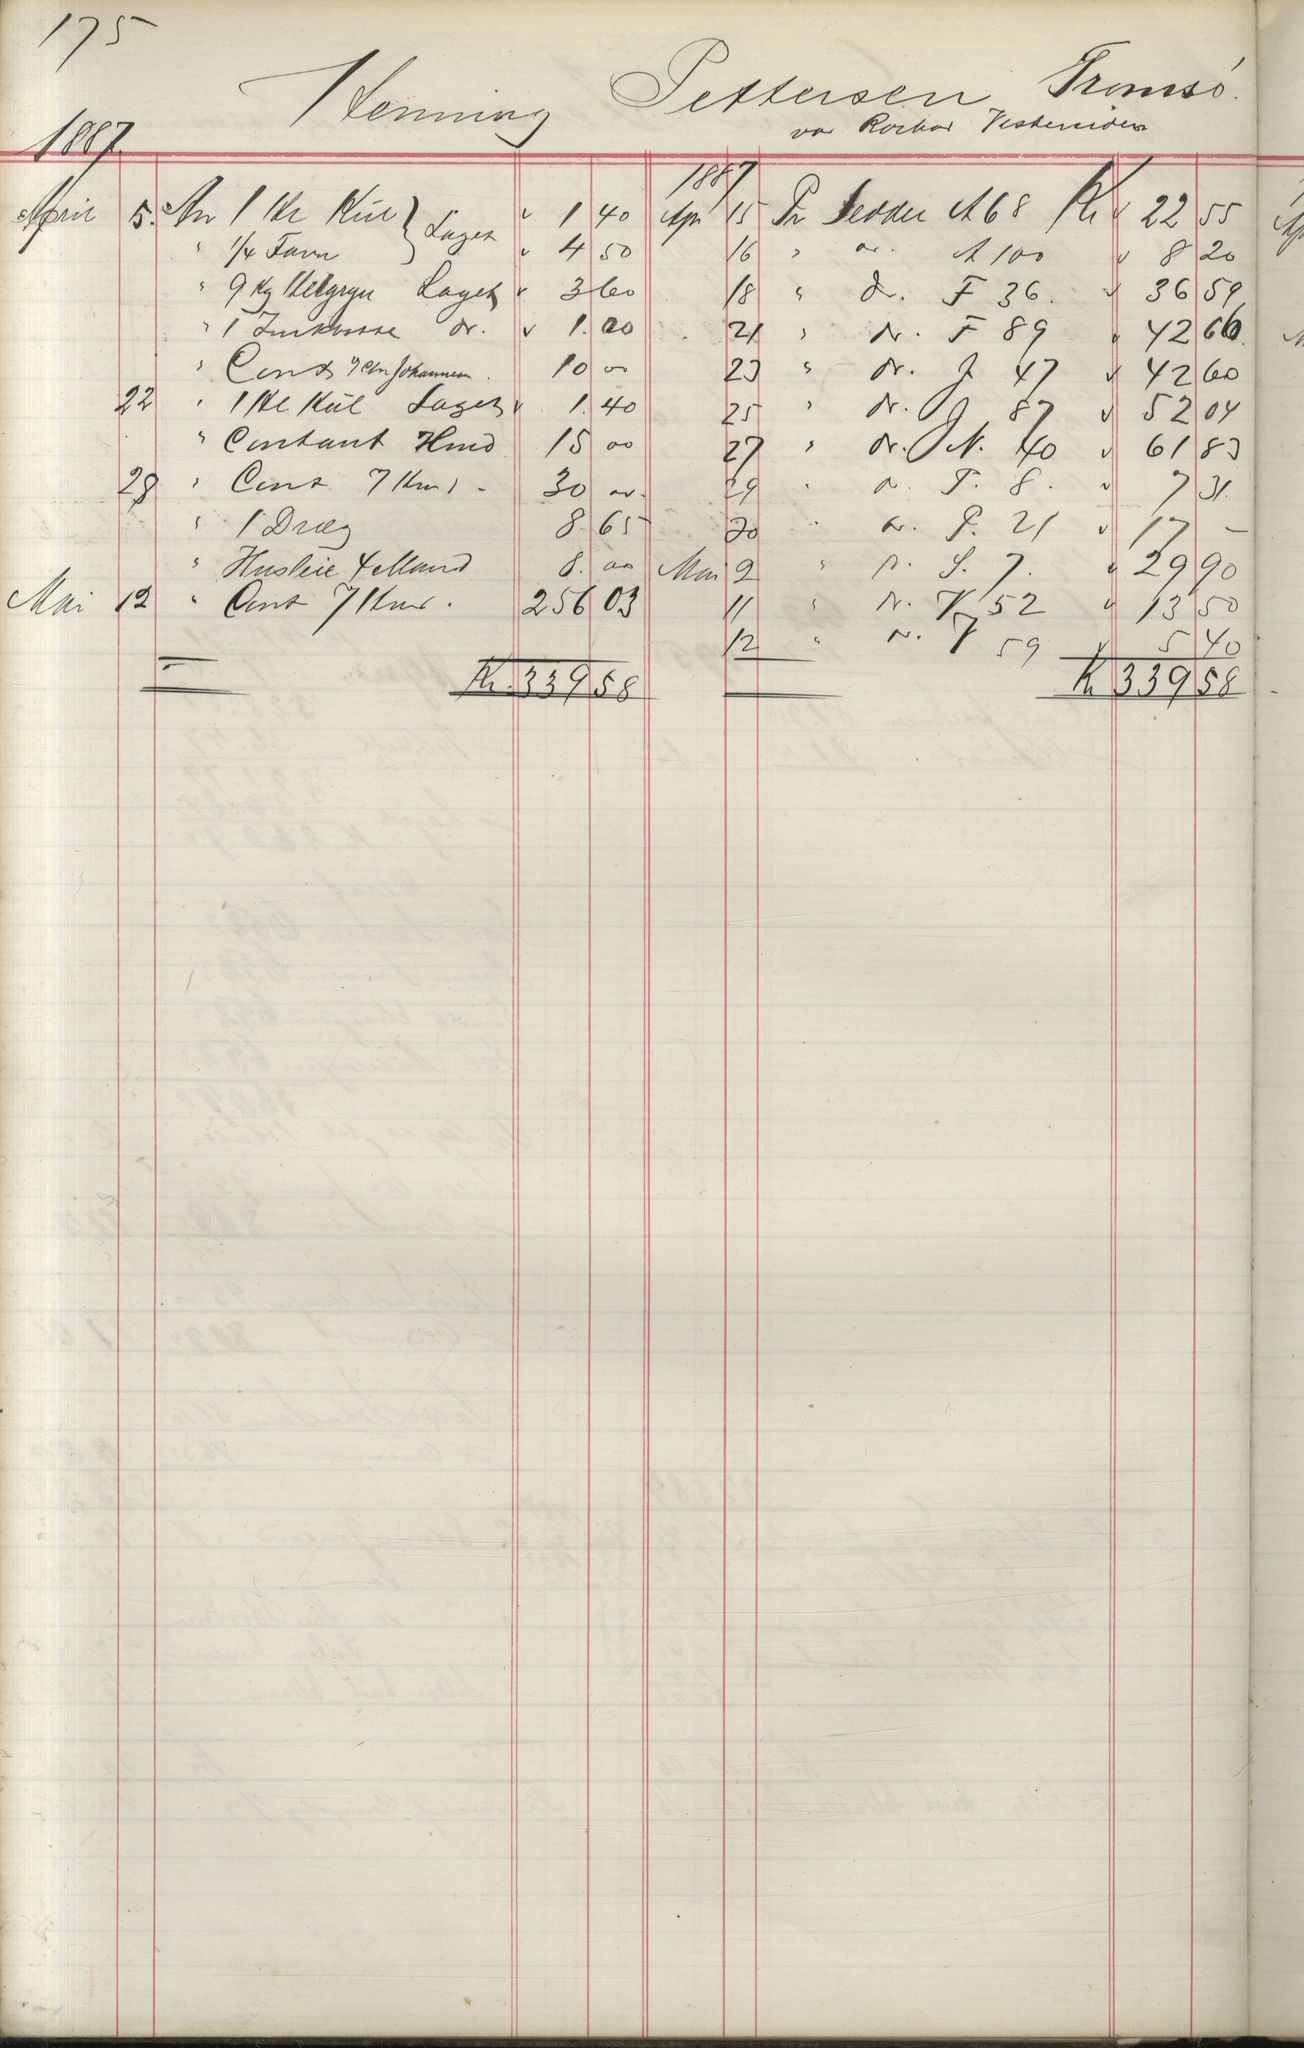 175
Henning Pettersen Tromsö.
vor Rorbod Vestersiden
1887.
April 5. An 1 Hl Kul } Laget " 1 40
" 1/4 Favn " 4 50
" 9 Kg Helgryn Laget " 3 60
" 1 do. " 1. 20
" Cont Johannesen. 10 00
22 " 1 Hl Kul Laget " 1. 40
" Contant 15 00
28 " Cont 30 00.
" 1 Dræg 8 65
" Husleie 4 Mand 8. 00
Mai 12 " Cont 256 03
Kr. 339 58
1887
Apr 15 Pr Seddel A 68 Kr " 22 55
16 " do. A 100 " 8 20
18 " do. F 36. " 36 59
21 " do. F 89 " 42 66.
23 " do. J 47 " 42 60
25 " do. J 87 " 52 04
27 " do. N. 40 " 61 83
29 " do. P. 8. " 7 31.
30 " do. P. 21 " 17 –
Mai 2 " do. S. 7. " 29 90
11 " do. V 52 " 13 50
12 " do. V 59 " 5 40
Kr 339 58